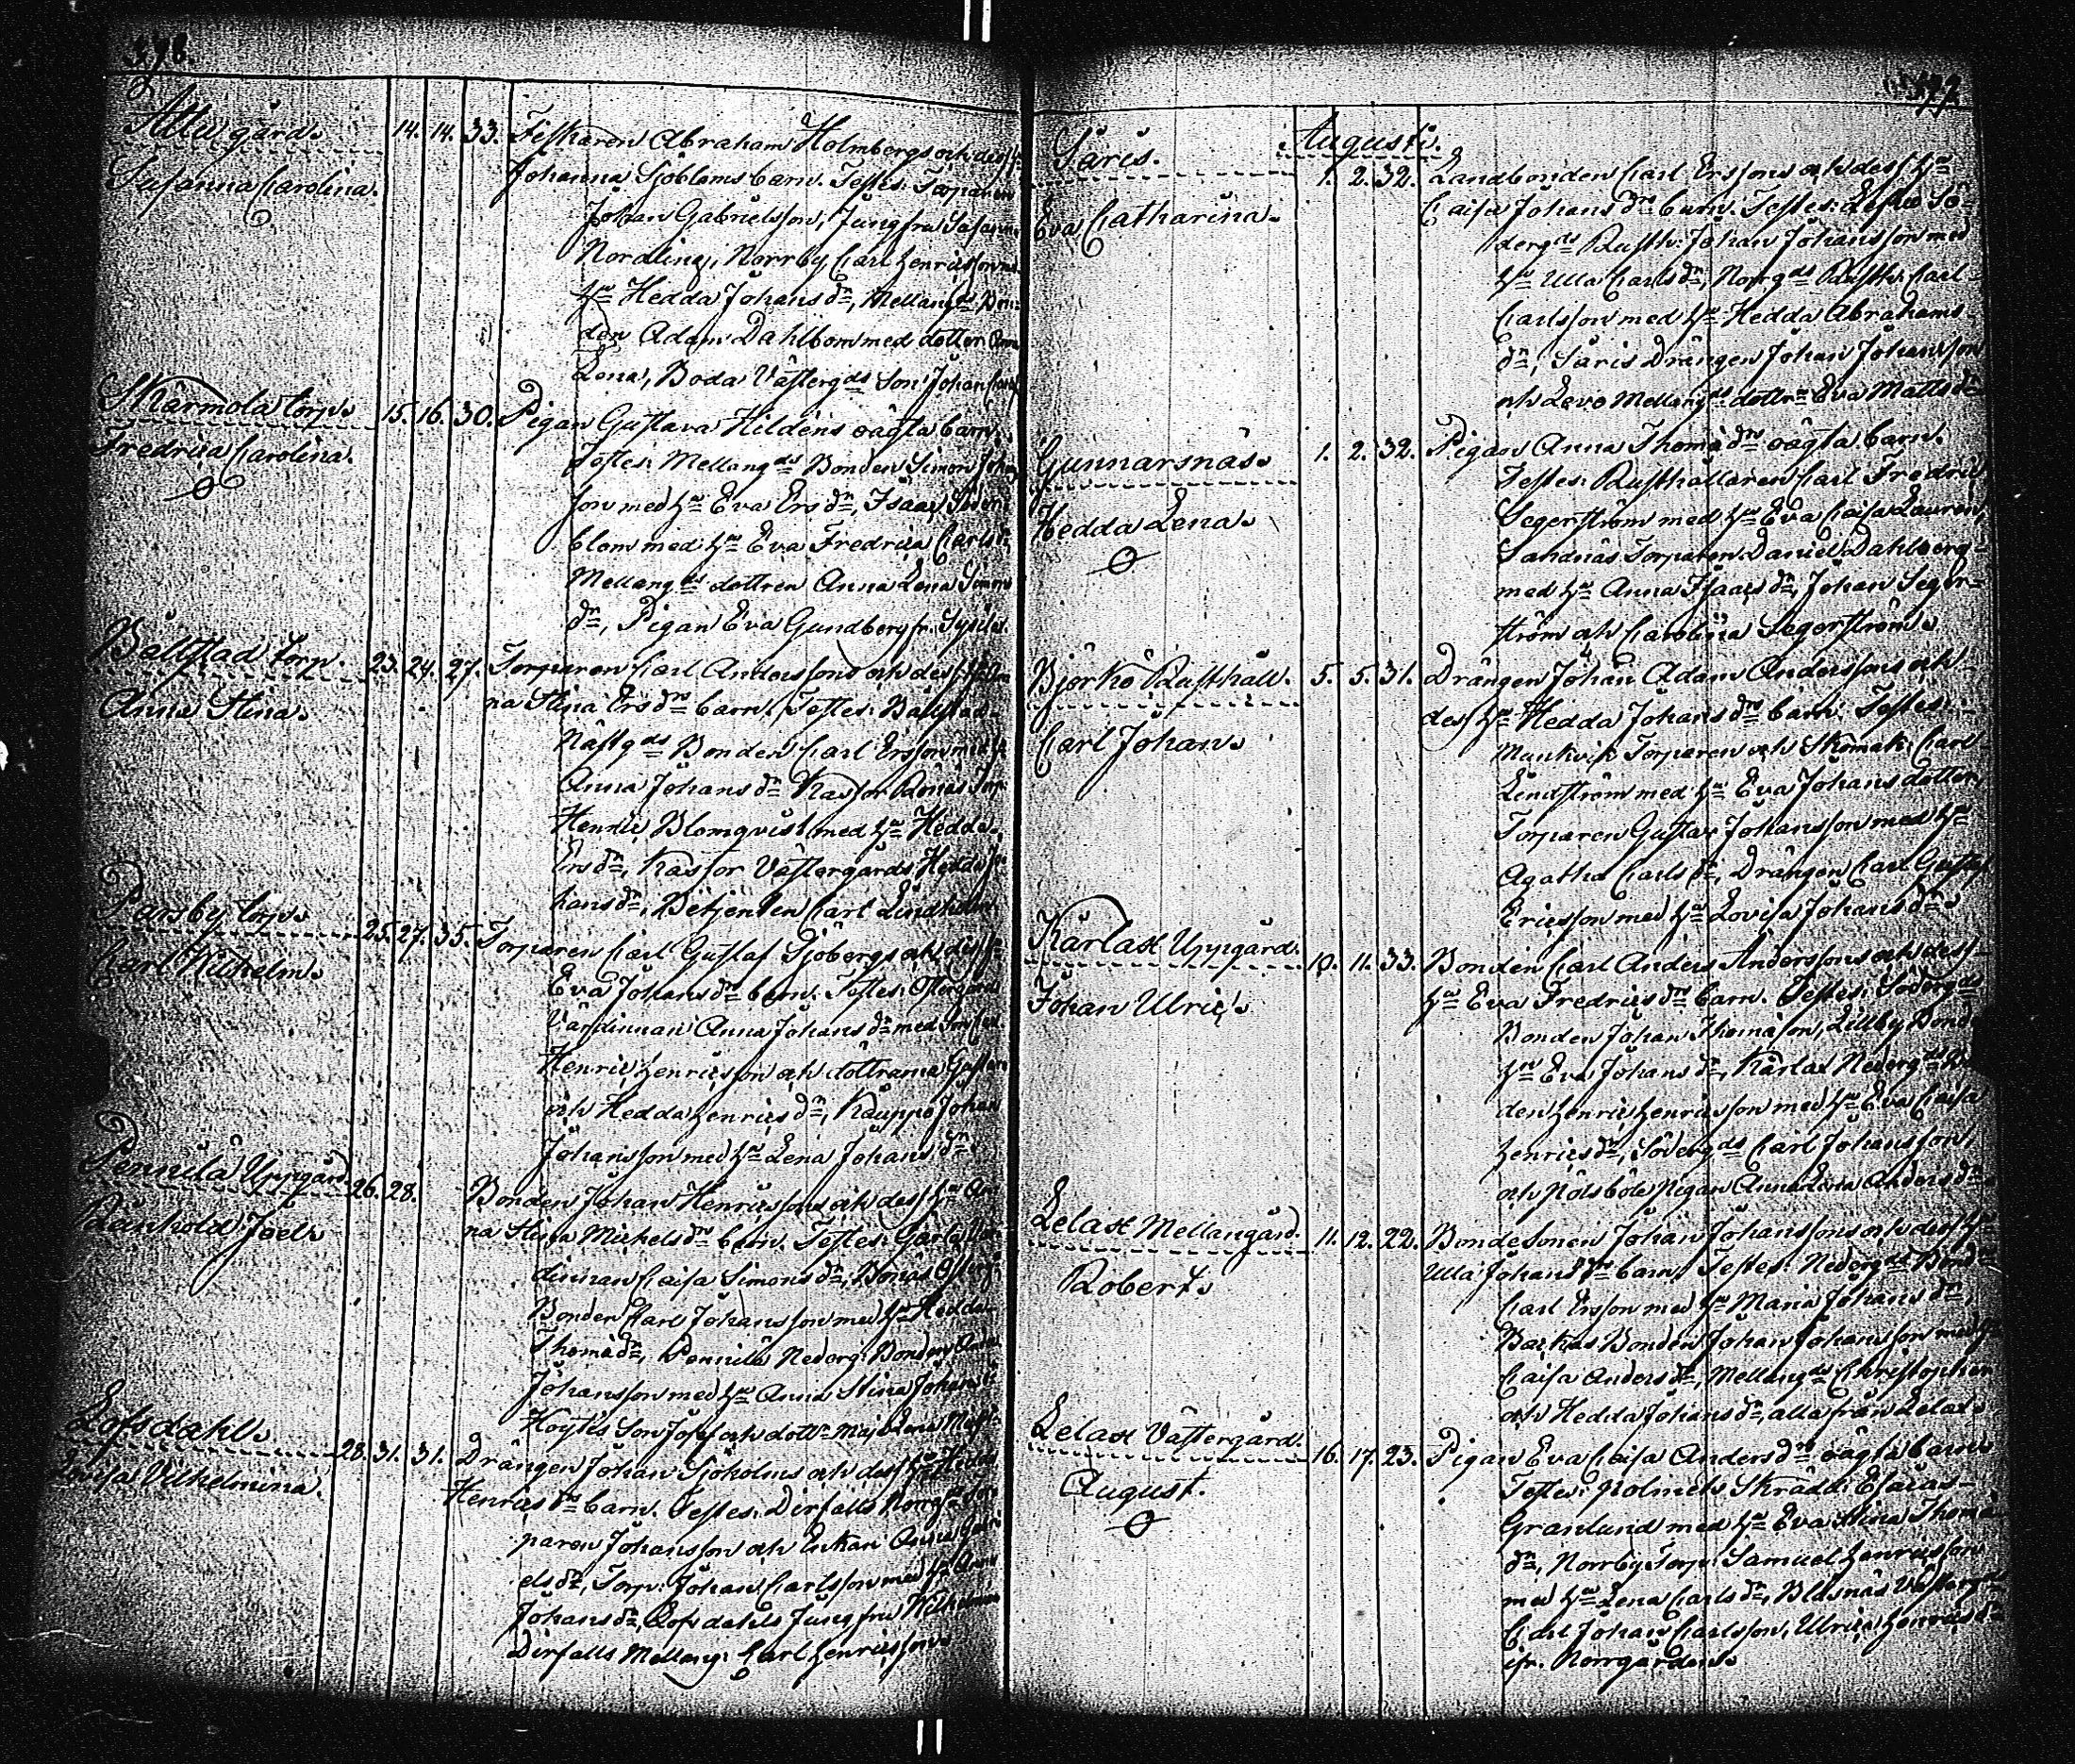 398.
Attu gård.
Susanna Carolina.
14. 14. 33. Fiskaren Abraham Holmbergs och dess
Johanna Sjöbloms barn. Testes: Torparen
Johan Gabrielsson, Jungfru Susanna
Nordling, Norrby Carl Henricsson
Hu Hedda Johans dr, Mellang ds Bon-
den Adam Dahlbom med dotter
Lena, Boda Västerg ds Son Johan
Skärmola torp.
Fredrica Carolina.
15. 16. 30. Pigan Gustava Hildens oägta barn.
Testes: Mellang ds Bonden Simon Johans
son med Hu Eva Ers dr, Isaac Söder-
blom med Hu Eva Fredrica Carls dr,
Mellang ds dottren Anna Lena Simons
dr, Pigan Eva Gundberg fr.
Bällstad torp.
Anna Stina.
23. 24. 27. Torparen Carl Anderssons och dess Hu An
na Stina Ers drs barn. Testes: Bällstad
Nästg ds Bonden Carl Ersson med Hu
Anna Johans dr Kassor Rönäs Torp.
Henric Blomqvist med Hu Hedda
Ers dr, Kassor Västergårds Hedda Jo
hans dr, Betjenten Carl Lindholm.
Parsby torp.
Carl Wilhelm.
25. 27. 35. Torparen Carl Gustaf Sjöbergs och dess Hu
Eva Johans drs barn. Testes: Östergårds
Värdinnan Anna Johans dr med Sonen
Henric Henricsson och döttrarna Gustava
och Hedda Henrics dr, Kauppo Johan
Johansson med Hu Lena Johans dr.
Pennila Uppgård
Reinhold Joel.
26. 28. Bonden Johan Henricssons och dess Hu An
na Stina Michels drs barn. Testes: Gårds Vär
dinnan Caisa Simons dr, Bonäs Österg.
Bonden Carl Johansson med Hu Hedda
Thomæ dr, Pennila Nederg: Bonden
Johansson med Hu Anna Stina Johans dr
Höytis Son Josef och dottr Maja Lena
Lofsdahl.
Lovisa Vilhelmina.
28. 31. 31. Drängen Johan Sjöholms och dess Hu Hedda
Henrics drs barn. Testes: Dirfalls Norrg ds Tor
paren Johansson och Enkan Anna Gabri
els dr, Torp: Johan Carlsson med Hu Anna
Johans dr, Lofsdahls Jungfru Wilhelmina
Dirfalls Mellang: Carl Henricsson.
399
Augusti.
Säris.
Eva Catharina.
1. 2. 32. Landbonden Carl Erssons och dess Hu
Caisa Johans drs barn. Testes: Lofsö Sö-
derg ds Rusth: Johan Johansson med
Hu Ulla Carls dr, Norrg ds Rusth: Carl
Carlsson med Hu Hedda Abrahams
dr, Säris Drängen Johan Johansson
och Levo Mellang ds dottr Eva Matts dr
Gunnarsnäs.
Hedda Lena.
1. 2. 32. Pigan Anna Thomæ drs oägta barn.
Testes: Rusthållaren Carl Fredric
Segerström med Hu Eva Caisa Lauren,
Sandnäs Torparen Daniel Dahlberg
med Hu Anna Isaacs dr, Johan Seger-
ström och Carolina Segerström.
Björkö Rusthåll.
Carl Johan.
5. 5. 31. Drängen Johan Adam Anderssons och
dess Hu Hedda Johans drs barn. Testes:
Munkvik Torparen och Skomak: Carl
Lindström med Hu Eva Johans dotter,
Torparen Gustav Johansson med Hu
Agatha Carls dr, Drängen Carl Gustaf
Ericsson med Hu Lovisa Johans dr.
Kärlax Uppgård.
Johan Ulric.
10. 11. 33. Bonden Carl Anders Anderssons och dess
Hu Eva Fredrics drs barn. Testes: Söderg ds
Bonden Johan Thomasson, Lillby Bond
Hu Eva Johans dr, Kärlax Nederg ds Bon
den Henric Henricsson med Hu Eva Caisa
Henrics dr, Söderg ds Carl Johansson
och Pölsböle Pigan Anna Lena Anders dr.
Lelax Mellangård.
Robert.
11. 12. 22. Bondesonen Johan Johanssons och dess Hu
Ulla Johans drs barn. Testes: Nederg ds Bond
Carl Ersson med Hu Maria Johans dr,
Backas Bonden Johan Johansson med Hu
Caisa Anders dr, Mellang ds Christopher
och Hedda Johans dr, alla från Lelax.
Lelax Västergård.
August.
16. 17. 23. Pigan Eva Caisa Anders drs oägta barn
Testes: Skrädd: Esaias
Granlund med Hu Eva Stina Thomæ
dr, Norrby Torp: Samuel Henricsson
med Hu Lena Carls dr, Blåsnäs Västerg ds
Carl Johan Carlsson, Ulrica Henrics dr
ifr. Norrgården.